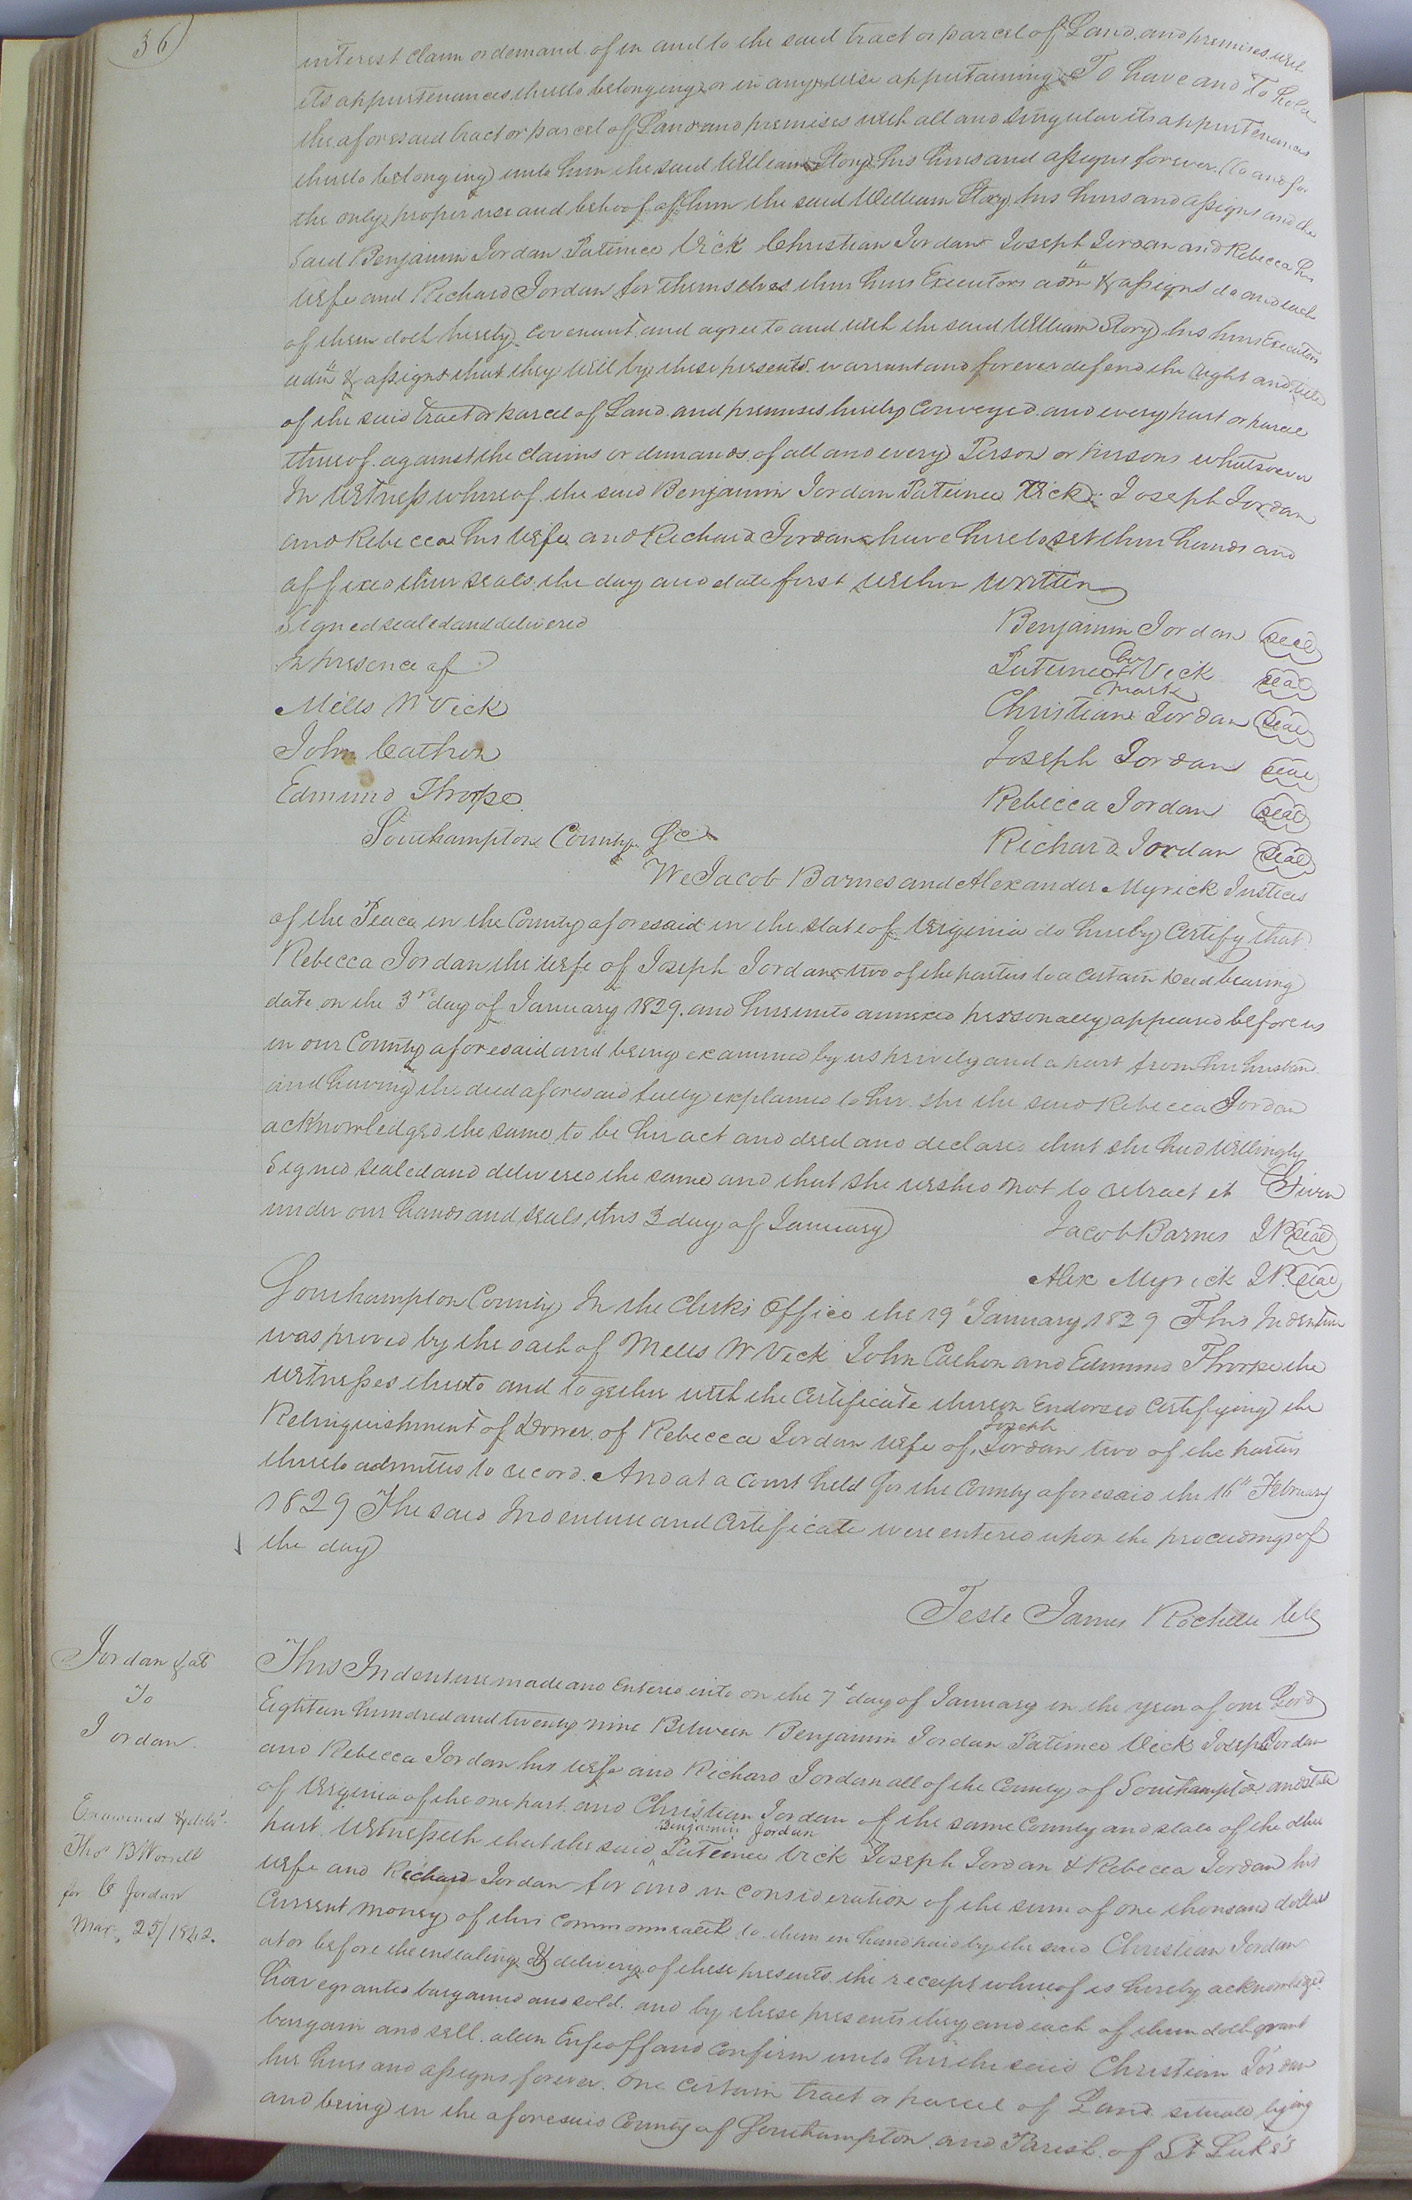 36
interest claim or demand of in and to the said tract or parcel of Land and premises with
its appurtenances thereto belonging or in any wise appertaining To have and To hold
the aforesaid tract or parcel of Land and premises with all and singular its appurtenances
thereto belonging unto him the said William Story his heirs and assigns forever (to and for
the only proper use and behoof of him the said William Story his heirs and assigns and the
said Benjamin Jordan Patience Vick Christian Jordan Joseph Jordan and Rebecca his
wife and Richard Jordan for themselves their heirs Executors adm.rs & assigns do and each
of them doth hereby covenant and agree to and with the said William Story his heirs Executors
adm.rs & assigns that they will by these presents warrant and forever defend the right and title
of the said tract or parcel of Land and premises hereby conveyed and every part or parcel
thereof against the claims or demands of all and every Person or persons whatsoever
In Witness whereof the said Benjamin Jordan Patience Vick Joseph Jordan
and Rebecca his Wife and Richard Jordan have hereto set their hands and
affixed their seals the day and date first within written
Signed sealed and delivered
in presence of
Mills W Vick
John Cathon
Edmund Thorpe
Benjamin Jordan seal
her
Patience + Vick seal
mark
Christian Jordan seal
Joseph Jordan seal
Rebecca Jordan seal
Richard Jordan seal
Southampton County Sc
We Jacob Barnes and Alexander Myrick Justices
of the Peace in the County aforesaid in the state of Virginia do hereby Certify that
Rebecca Jordan the wife of Joseph Jordan two of the parties to a certain Deed bearing
date on the 3rd day of January 1829. and hereunto annexed personally appeared before us
in our County aforesaid and being examined by us privily and apart from her husband
and having the deed aforesaid fully explained to her she the said Rebecca Jordan
acknowledged the same to be her act and deed and declared that she had willingly
Signed sealed and delivered the same and that she wished not to retract it Given
under our hands and seals this 3 day of January
Jacob Barnes J P seal
Alex Myrick J P. seal
Southampton County In the Clerks Office the 19th January 1829 This Indenture
was proved by the oath of Mills W Vick John Cathon and Edmund Thorpe the
witnesses thereto and together with the Certificate thereon Endorsed Certifying the
Relinquishment of Dower of Rebecca Jordan wife of Joseph Jordan two of the parties
thereto admitted to record. And at a Court held for the County aforesaid the 16th February
1829 The said Indenture and Certificate were entered upon the proceedings of
the day
Teste James Rochelle Clk
Jordan & als
To
Jordan
Examined & deld.
Thos B Worrell
for C Jordan
Mar. 25/1842.
This Indenture made and Entered into on the 7th day of January in the year of our Lord
Eighteen hundred and twenty nine Between Benjamin Jordan Patience Vick Joseph Jordan
and Rebecca Jordan his wife and Richard Jordan all of the County of Southampton and state
of Virginia of the one part and Christian Jordan of the same County and state of the other
part Witnesseth that the said Benjamin Jordan Patience Vick Joseph Jordan & Rebecca Jordan his
wife and Richard Jordan for and in consideration of the sum of one thousand dollars
Current money of this commonwealth to them in hand paid by the said Christian Jordan
at or before the ensealing & delivering of these presents the receipt whereof is hereby acknowledged
have granted bargained and sold and by these presents they and each of them doth grant
bargain and sell alien Enfeoff and confirm unto her the said Christian Jordan
her heirs and assigns forever one certain tract or parcel of Land situate lying
and being in the aforesaid County of Southampton and Parish of St Luke's